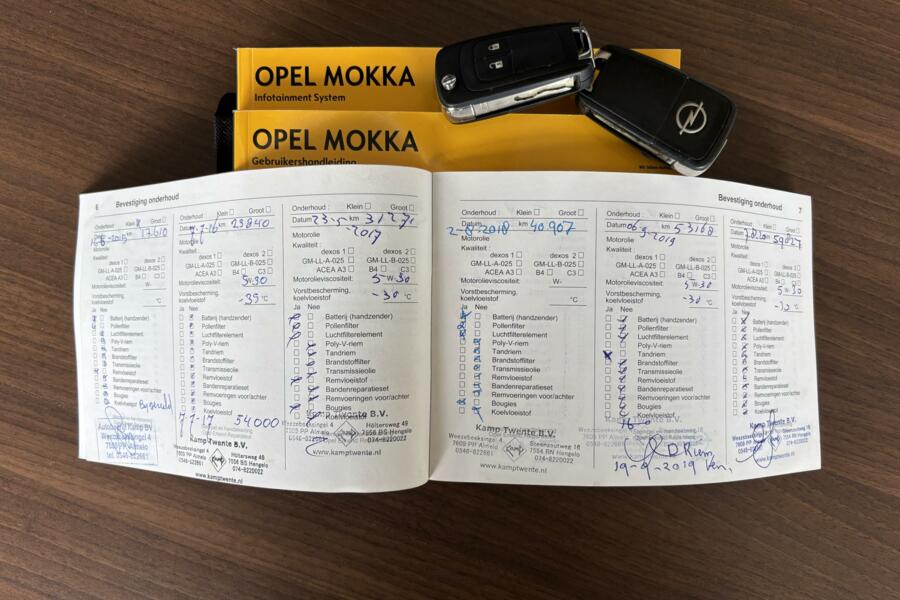 OPEL MOKKA
Infotainment System
OPEL MOKKA
Gebruikershandleiding
6 Bevestiging onderhoud
Klein Groot
17.610
Motorolie
Kwaliteit:
dexos 1 dexos 2
GM-LL-A-025 GM-LL-B-025
ACEA A3 B4 C3
Motorolieviscositeit: W-
Vorstbescherming,
koelvloeistof °C
Ja Nee
Batterij (handzender)
Pollenfilter
Luchtfilterelement
Poly-V-riem
Tandriem
Brandstoffilter
Transmissieolie
Remvloeistof
Bandenreparatieset
Remvoeringen voor/achter
Bougies
Koelvloeistof Bijgevuld
Autobedrijf Kamp BV
Weezebeeksingel 4
7609 PP Almelo
tel. 0546-822661
Onderhoud: Klein Groot
Datum 7-7-16 km 23840
Motorolie
Kwaliteit:
dexos 1 dexos 2
GM-LL-A-025 GM-LL-B-025
ACEA A3 B4 C3
Motorolieviscositeit: 5W-30
Vorstbescherming,
koelvloeistof -35 °C
Ja Nee
Batterij (handzender)
Pollenfilter
Luchtfilterelement
Poly-V-riem
Tandriem
Brandstoffilter
Transmissieolie
Remvloeistof
Bandenreparatieset
Remvoeringen voor/achter
Bougies
Koelvloeistof
54000
Kamp Twente B.V.
Weezebeeksingel 4
7609 PP Almelo
0546-822661
KAMP
Höltersweg 49
7556 BS Hengelo
074-8220022
www.kamptwente.nl
Onderhoud: Klein Groot
Datum 23-5 km 31271
-2017
Motorolie
Kwaliteit:
dexos 1 dexos 2
GM-LL-A-025 GM-LL-B-025
ACEA A3 B4 C3
Motorolieviscositeit: 5 W-30
Vorstbescherming,
koelvloeistof -30 °C
Ja Nee
Batterij (handzender)
Pollenfilter
Luchtfilterelement
Poly-V-riem
Tandriem
Brandstoffilter
Transmissieolie
Remvloeistof
Bandenreparatieset
Remvoeringen voor/achter
Bougies
Koelvloeistof
Kamp Twente B.V.
Weezebeeksingel 4
7609 PP Almelo
0546-822661
Höltersweg 49
7556 BS Hengelo
074-8220022
www.kamptwente.nl
Bevestiging onderhoud 7
Onderhoud: Klein Groot
2-8-2018 km 40.907
Motorolie
Kwaliteit:
dexos 1 dexos 2
GM-LL-A-025 GM-LL-B-025
ACEA A3 B4 C3
Motorolieviscositeit: W-
Vorstbescherming,
koelvloeistof °C
Ja Nee
Batterij (handzender)
Pollenfilter
Luchtfilterelement
Poly-V-riem
Tandriem
Brandstoffilter
Transmissieolie
Remvloeistof
Bandenreparatieset
Remvoeringen voor/achter
Bougies
Koelvloeistof
Kamp Twente B.V.
Weezebeeksingel 4
7609 PP Almelo
0546-822661
KAMP
7554 RN Hengelo
074-8220022
www.kamptwente.nl
Onderhoud: Klein Groot
Datum 06 km 53168
-9-2019
Motorolie
Kwaliteit:
dexos 1 dexos 2
GM-LL-A-025 GM-LL-B-025
ACEA A3 B4 C3
Motorolieviscositeit: 5W-30
Vorstbescherming,
koelvloeistof -30 °C
Ja Nee
Batterij (handzender)
Pollenfilter
Luchtfilterelement
Poly-V-riem
Tandriem
Brandstoffilter
Transmissieolie
Remvloeistof
Bandenreparatieset
Remvoeringen voor/achter
Bougies
Koelvloeistof
19-9-2019
Onderhoud: Klein Groot
Datum km
Motorolie
Kwaliteit:
dexos 1 dexos 2
GM-LL-A-025 GM-LL-B-025
ACEA A3 B4 C3
Motorolieviscositeit: 5W-30
Vorstbescherming,
koelvloeistof °C
Ja Nee
Batterij (handzender)
Pollenfilter
Luchtfilterelement
Poly-V-riem
Tandriem
Brandstoffilter
Transmissieolie
Remvloeistof
Bandenreparatieset
Remvoeringen voor/achter
Bougies
Koelvloeistof
Kamp Twente B.V.
Weezebeeksingel 4
7609 PP Almelo
0546-822661
7554 RN Hengelo
074-8220022
www.kamptwente.nl